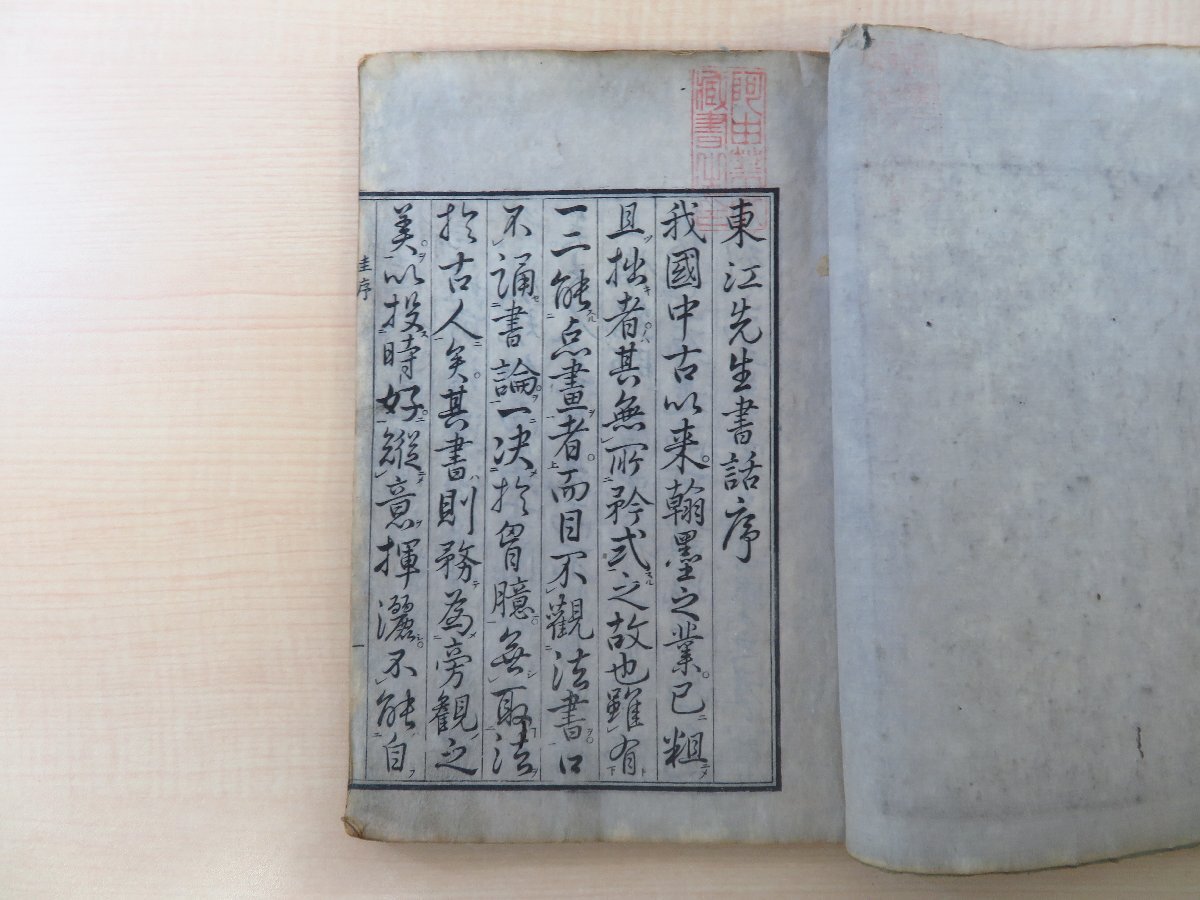 東江先生書話序
我國中古以来翰墨之業已粗
且拙者其無所矜式之故也雖有
一二能点畫者而目不觀法書口
不誦書論一决於胷臆無取法
於古人矣其書則務為旁觀之
美以投時好縱意揮灑不能自
序
藏書